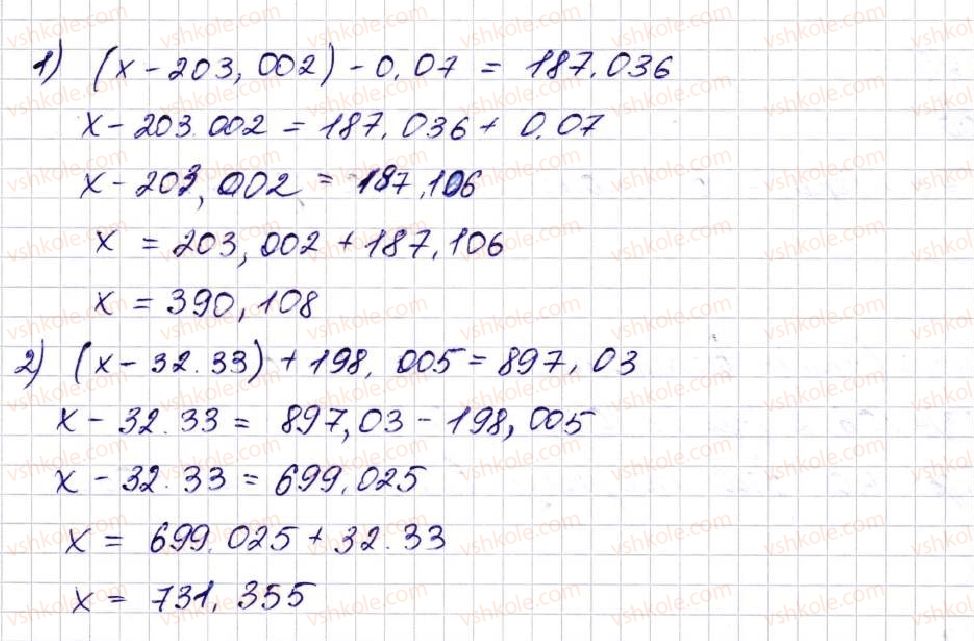 1) (x - 203,002) - 0,07 = 187,036
x - 203,002 = 187,036 + 0,07
x - 203,002 = 187,106
x = 203,002 + 187,106
x = 390,108
2) (x - 32.33) + 198,005 = 897,03
x - 32.33 = 897,03 - 198,005
x - 32.33 = 699,025
x = 699,025 + 32.33
x = 731,355
vshkole.com